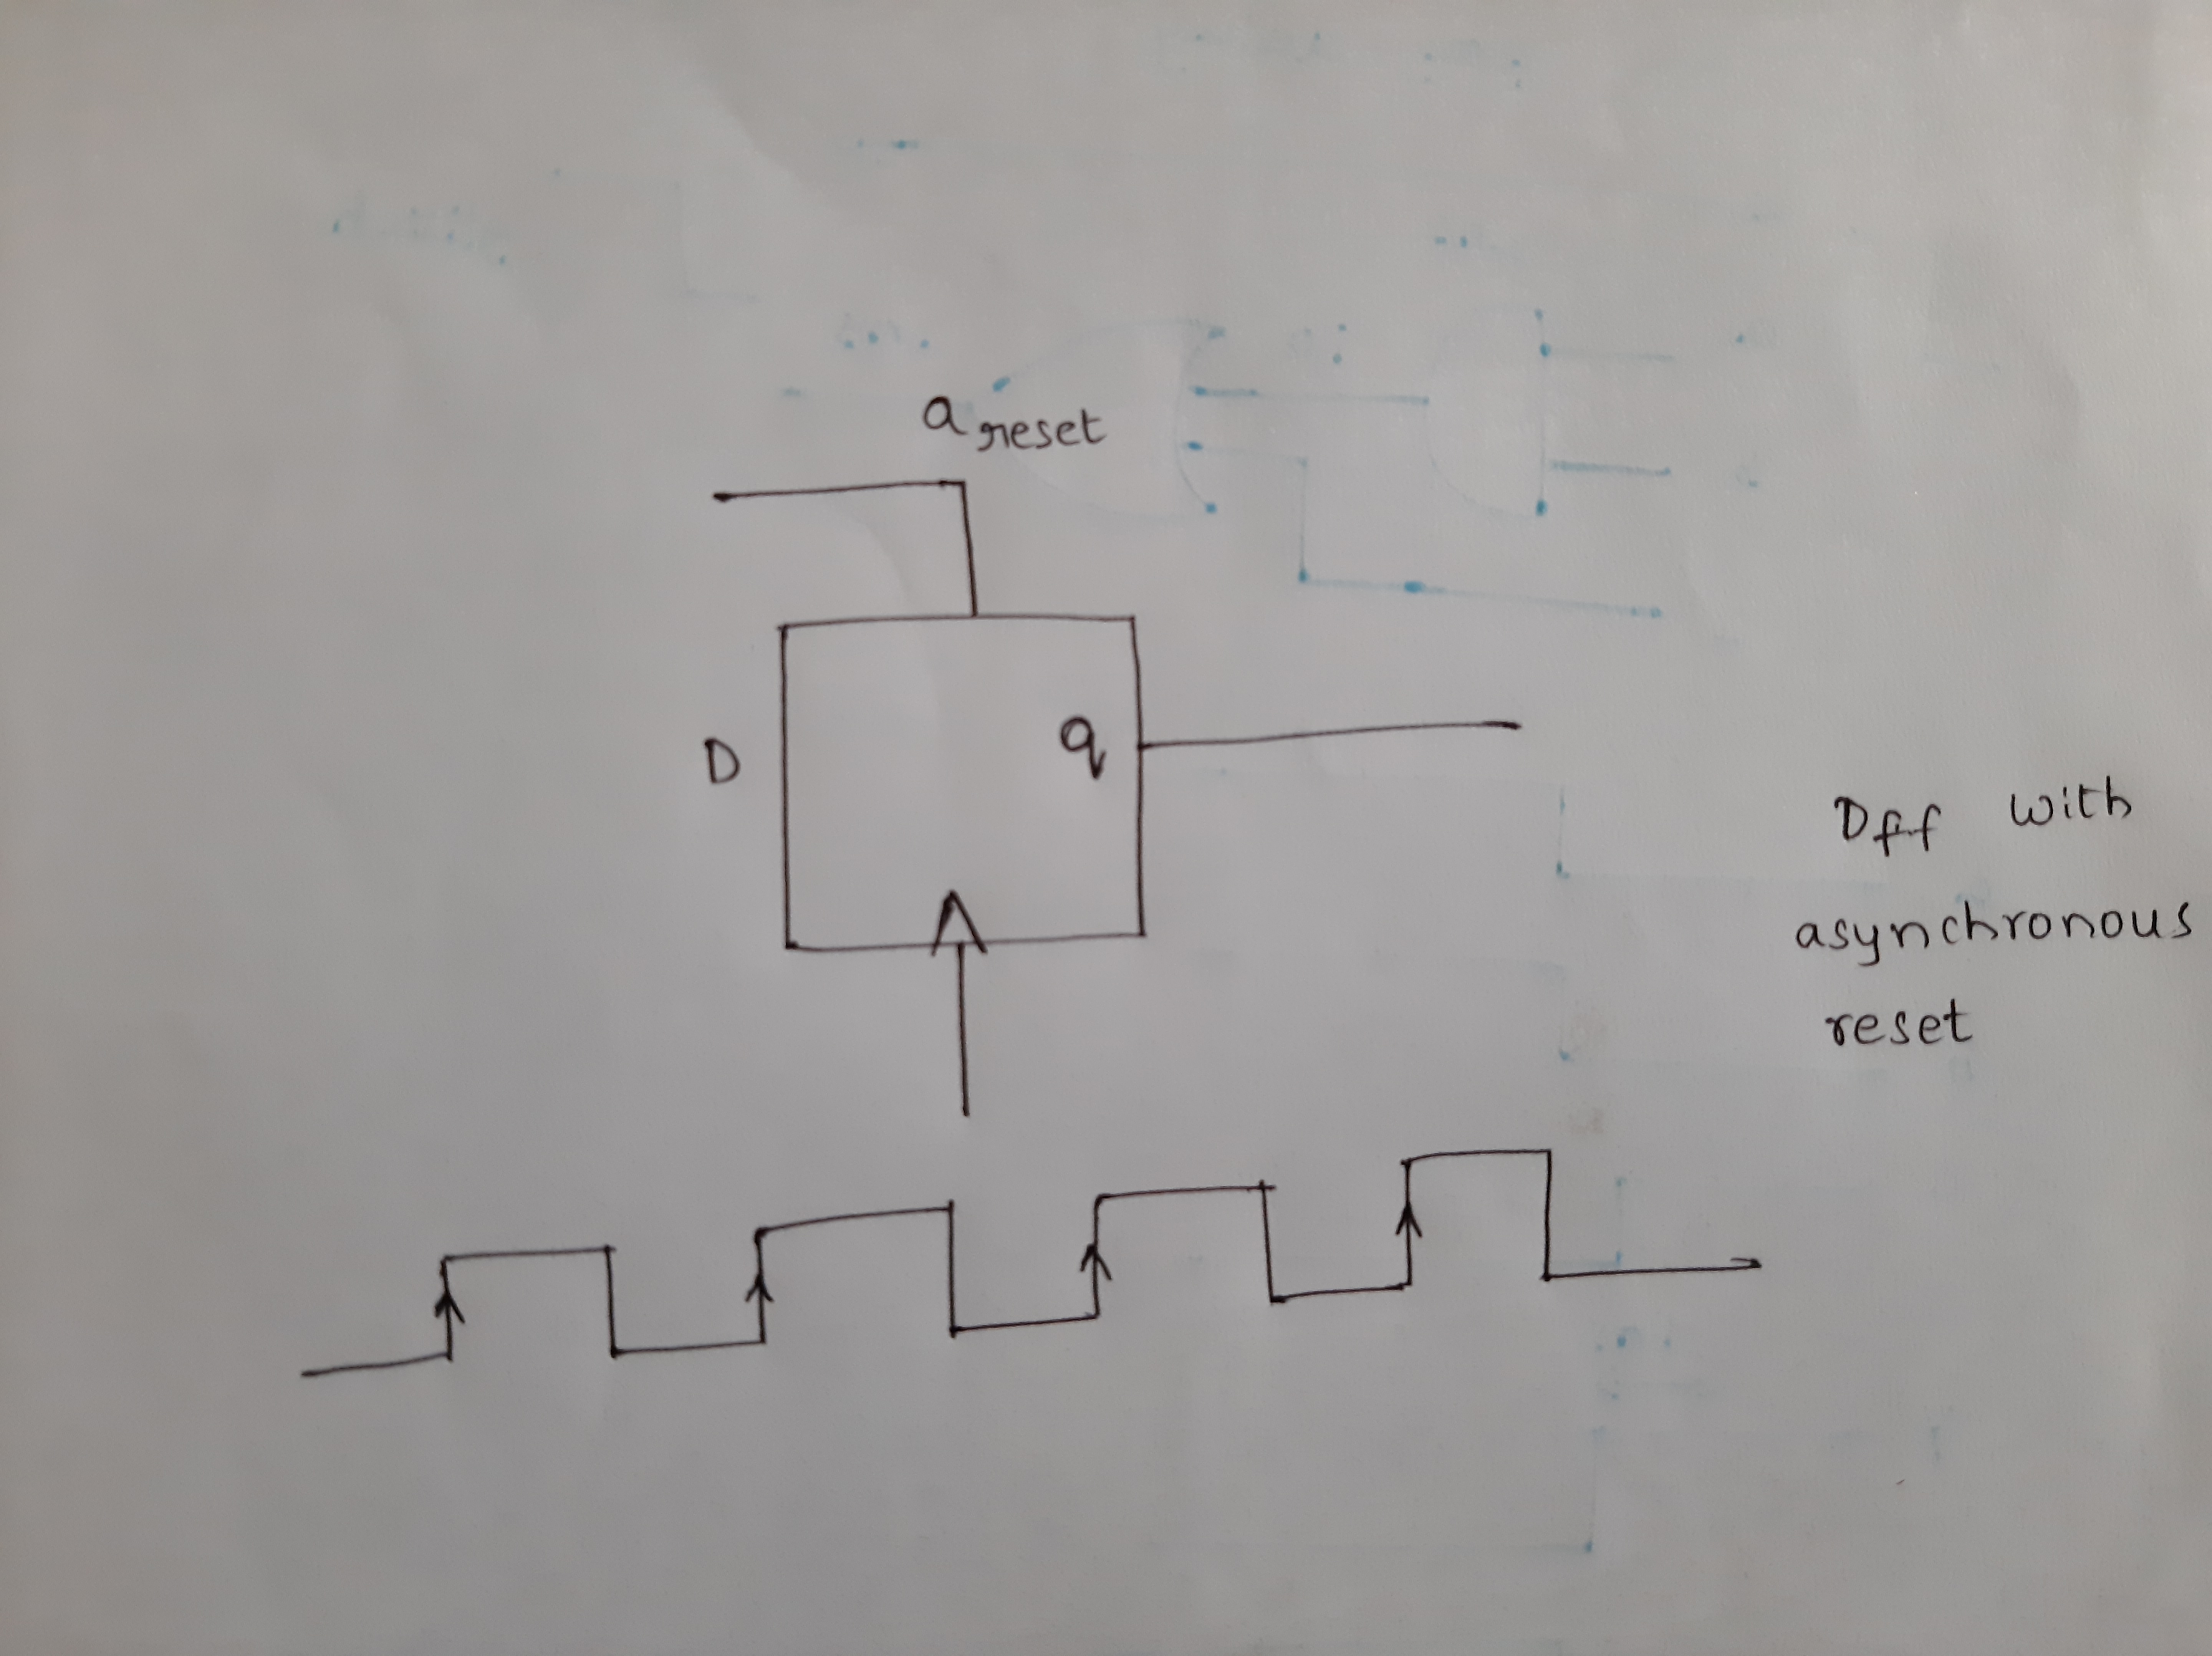 a reset
D
q
Dff with
asynchronous
reset